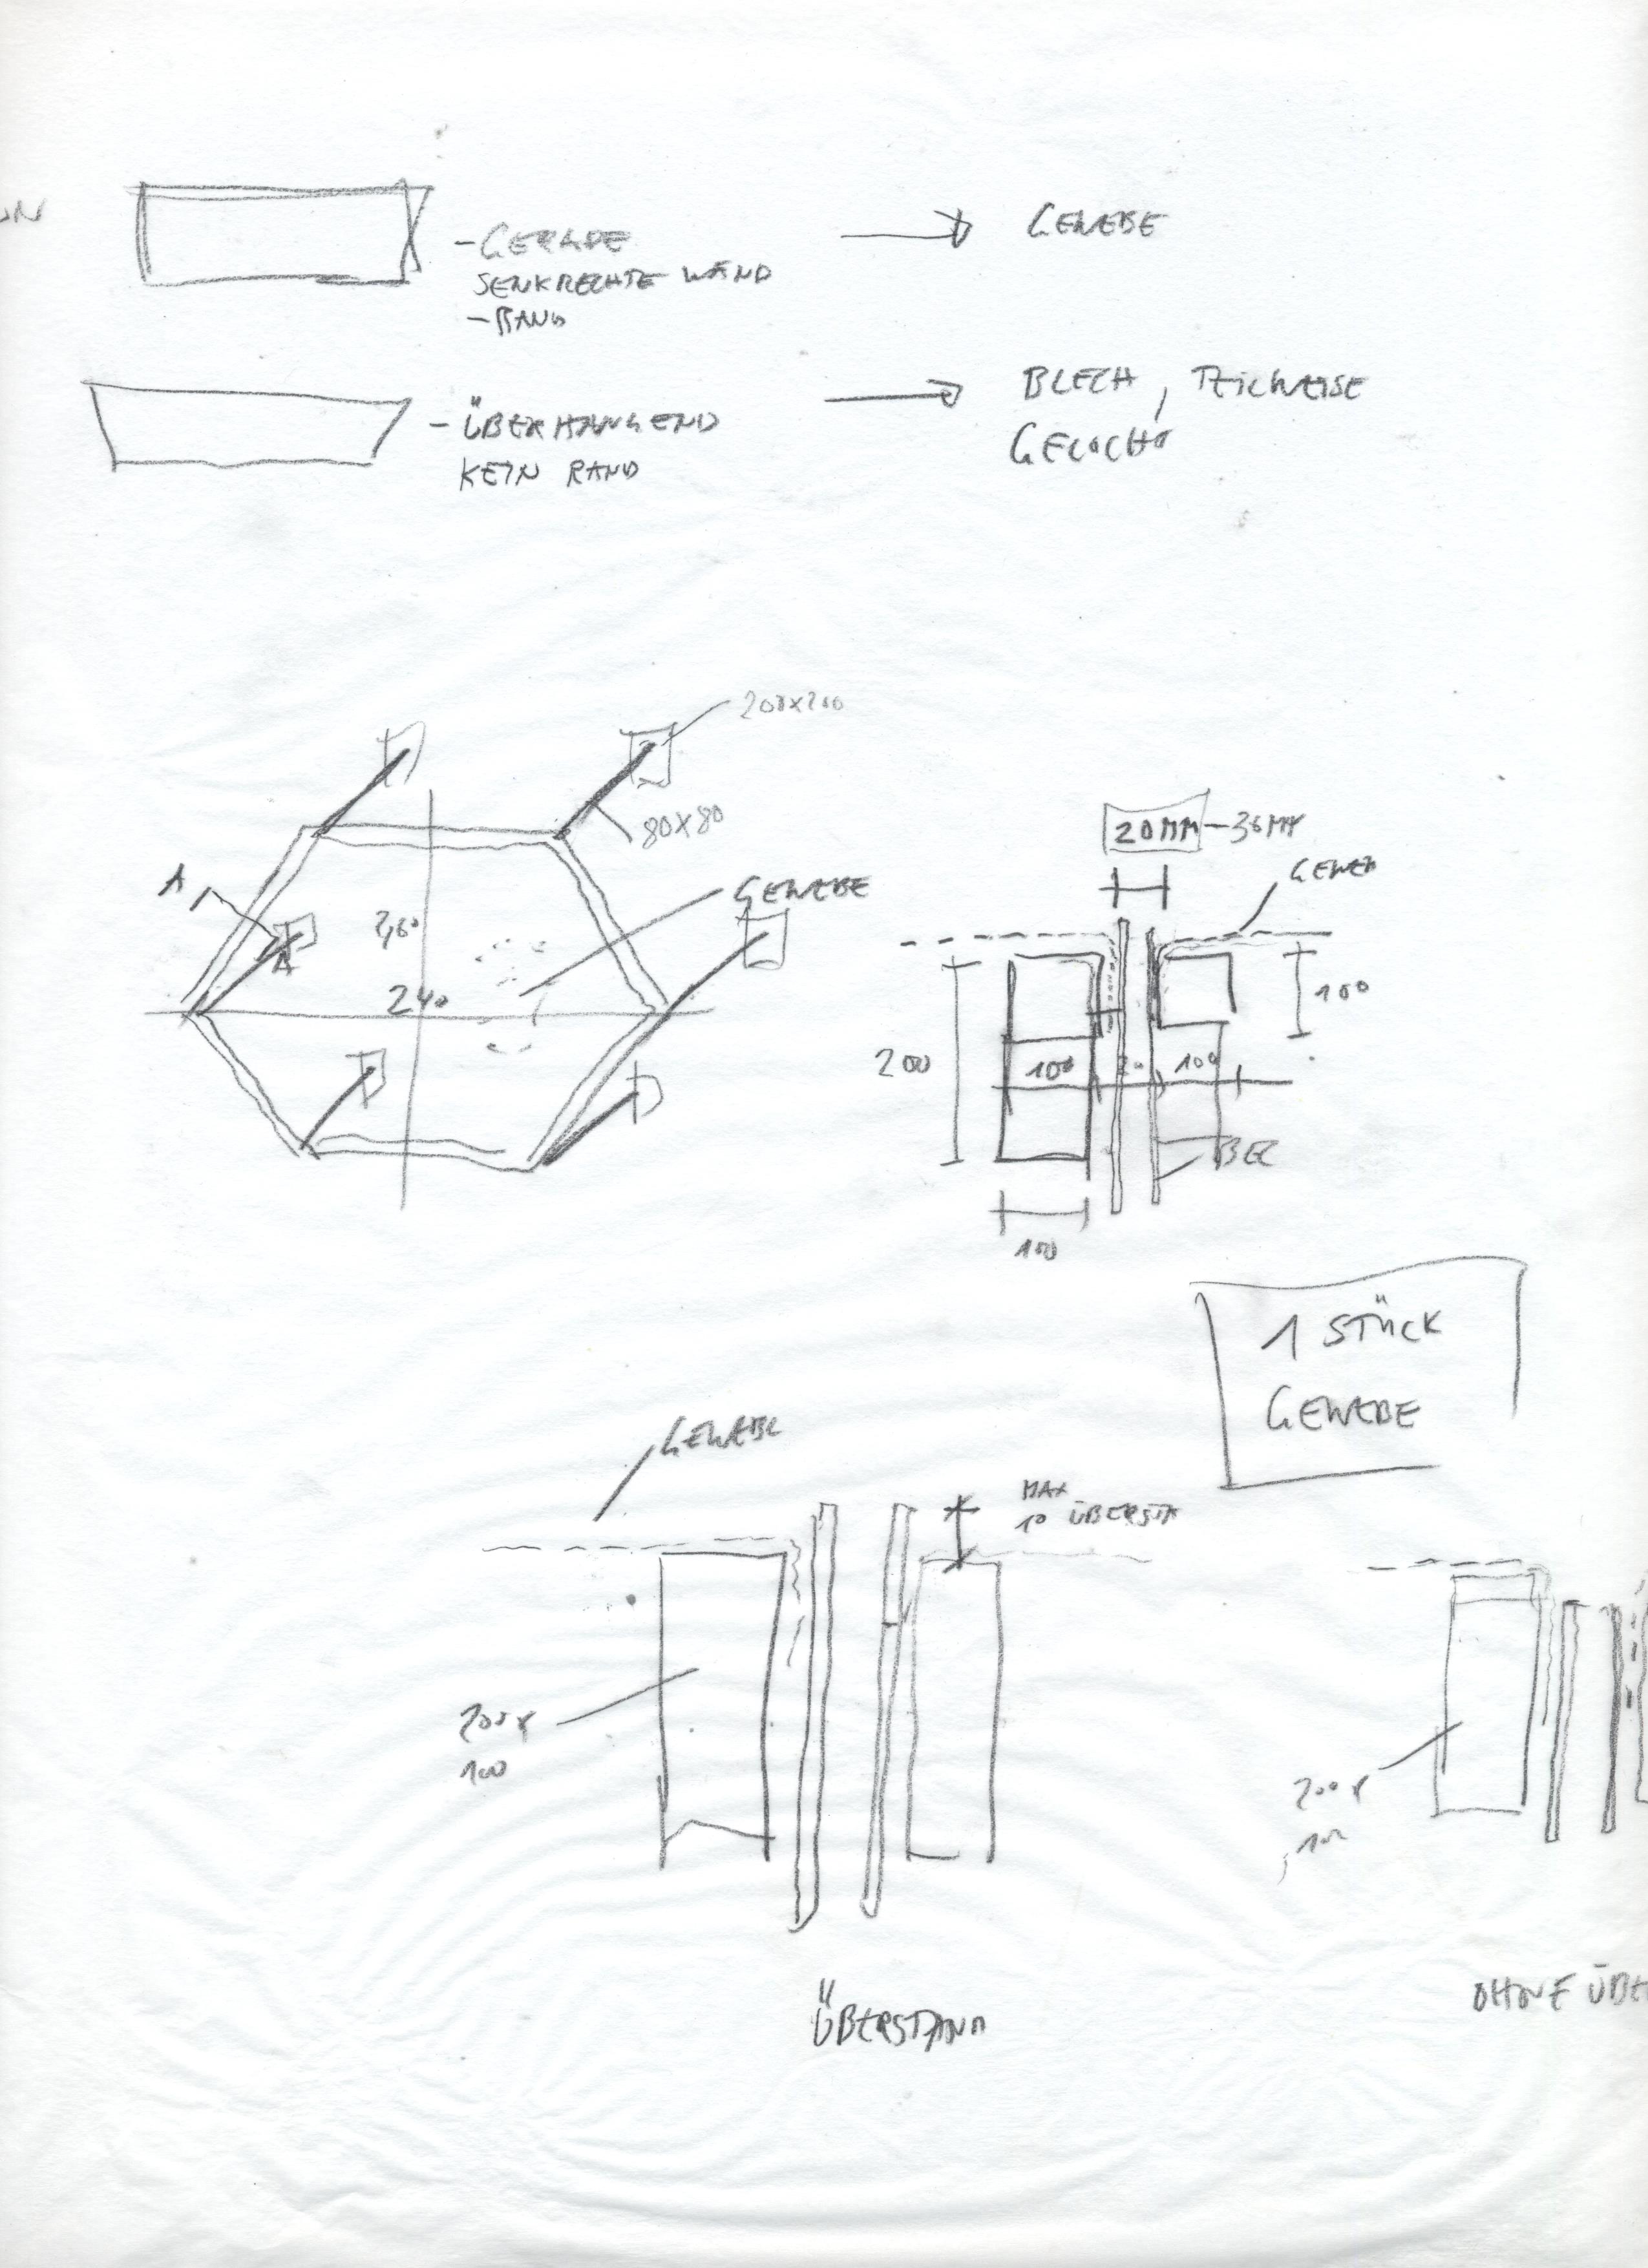 - GERADE
SENKRECHTE WAND
- RAND
GEWEBE
- ÜBERHÄNGEND
KEIN RAND
BLECH, TEILWEISE
GELOCHT
200x200
80X80
A
GEWEBE
240
20MM
GEWEB
200
100
20
100
100
100
1 STÜCK
GEWEBE
GEWEBE
MAX
10 ÜBERSTA
200x
100
200x
100
ÜBERSTAND
OHNE ÜBE